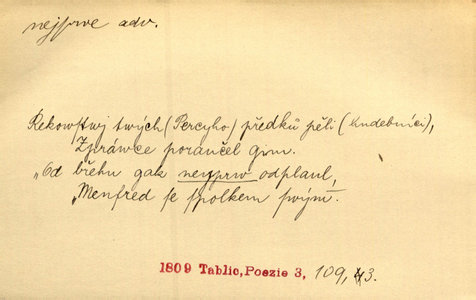 nejprve adv.
Řekowstwj twých (Percyho) předků pěli (hudebníci),
Zpráwce poraučel gim.
„Od břehu gak neyprw odplaul,
„Menfred se spolkem swým.
1809 Tablic, Poezie 3, 109, 43.